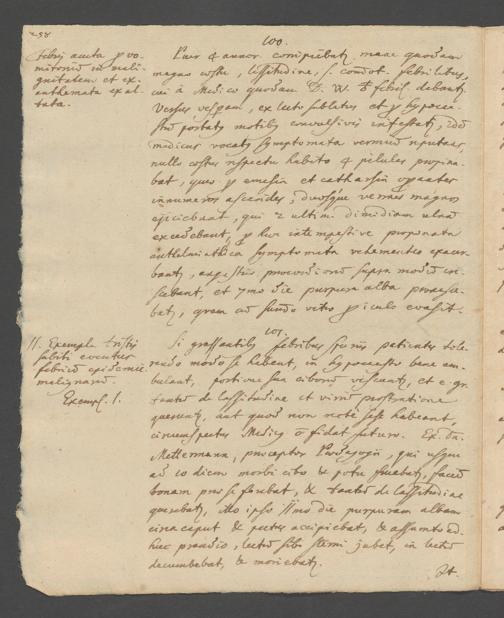 258
100.
Febris acuta per vo-
mitorium in mali-
gnitatem et ex-
anthemata exal-
tata.
Puer 4 annor. corripiebatur mane quodam
magno aestu, lassitudine,
cui à Medico quodam D. W. febril. debantur
Versus vesperam, ex lecto sublatus et
portatus motibus convulsivis infestatur,
medicus vocatus symptomata vermium reputans,
nullo aestus respectu habito 4 pilulas propina-
bat, quae per emesin et catharsin operatae
innumeros ascarides, duosque vermes magnos
ejiciebant, qui ultim. dimidiam ulnam
excedebant, per hoc intempestive propinata
anthelminthica symptomata vehementius exacer-
bantur, augustiae praecordiorum supra modum in-
, et 7mo die purpura alba
batur, quam cum summo vitae periculo evasit.
101.
II. Exempla tristis
subiti eventus
febrium epidemic.
malignarum.
Exempl. 1.
Si grassantibus febribus patientes tole-
rando modo se habent, in hypocausto bene am-
bulant, portiones suas ciborum, et e. gr.
tantum de lassitudine et virium prostratione
queruntur, aut quod non noctes se habeant,
circumspectus Medicus fidat futuro. Ex. Dn.
Mettermann, praeceptor Paedagogii, qui usque
ad 10 diem morbi cibo & potu fruebatur, faciem
bonam prae se ferebat, & tantum de lassitudine
querebatur, illo ipso 11mo die purpuram albam
circa caput & pectus accipiebat, & assumto ad-
huc prandio, lectum sibi sterni jubet, in lectum
decumbebat, & moriebatur.